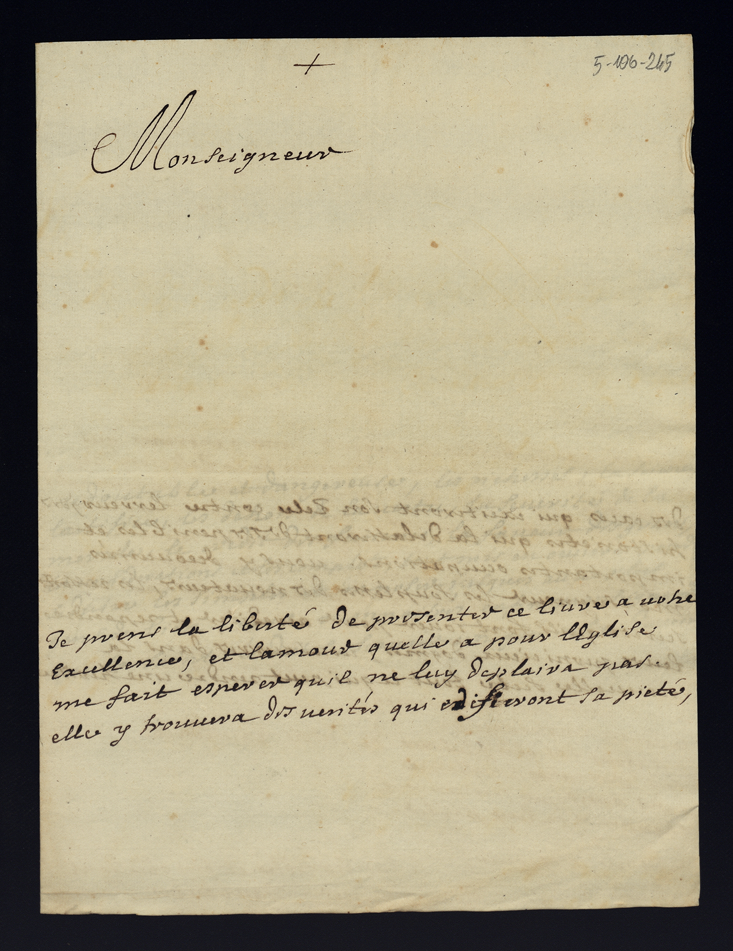 +
5-106-245
Monseigneur
Je prens la liberté de presenter ce livre a votre
Excellence, et lamour quelle a pour lEglise
me fait esperer quil ne luy deplaira pas.
elle y trouuera des verités qui edifieront sa pieté,